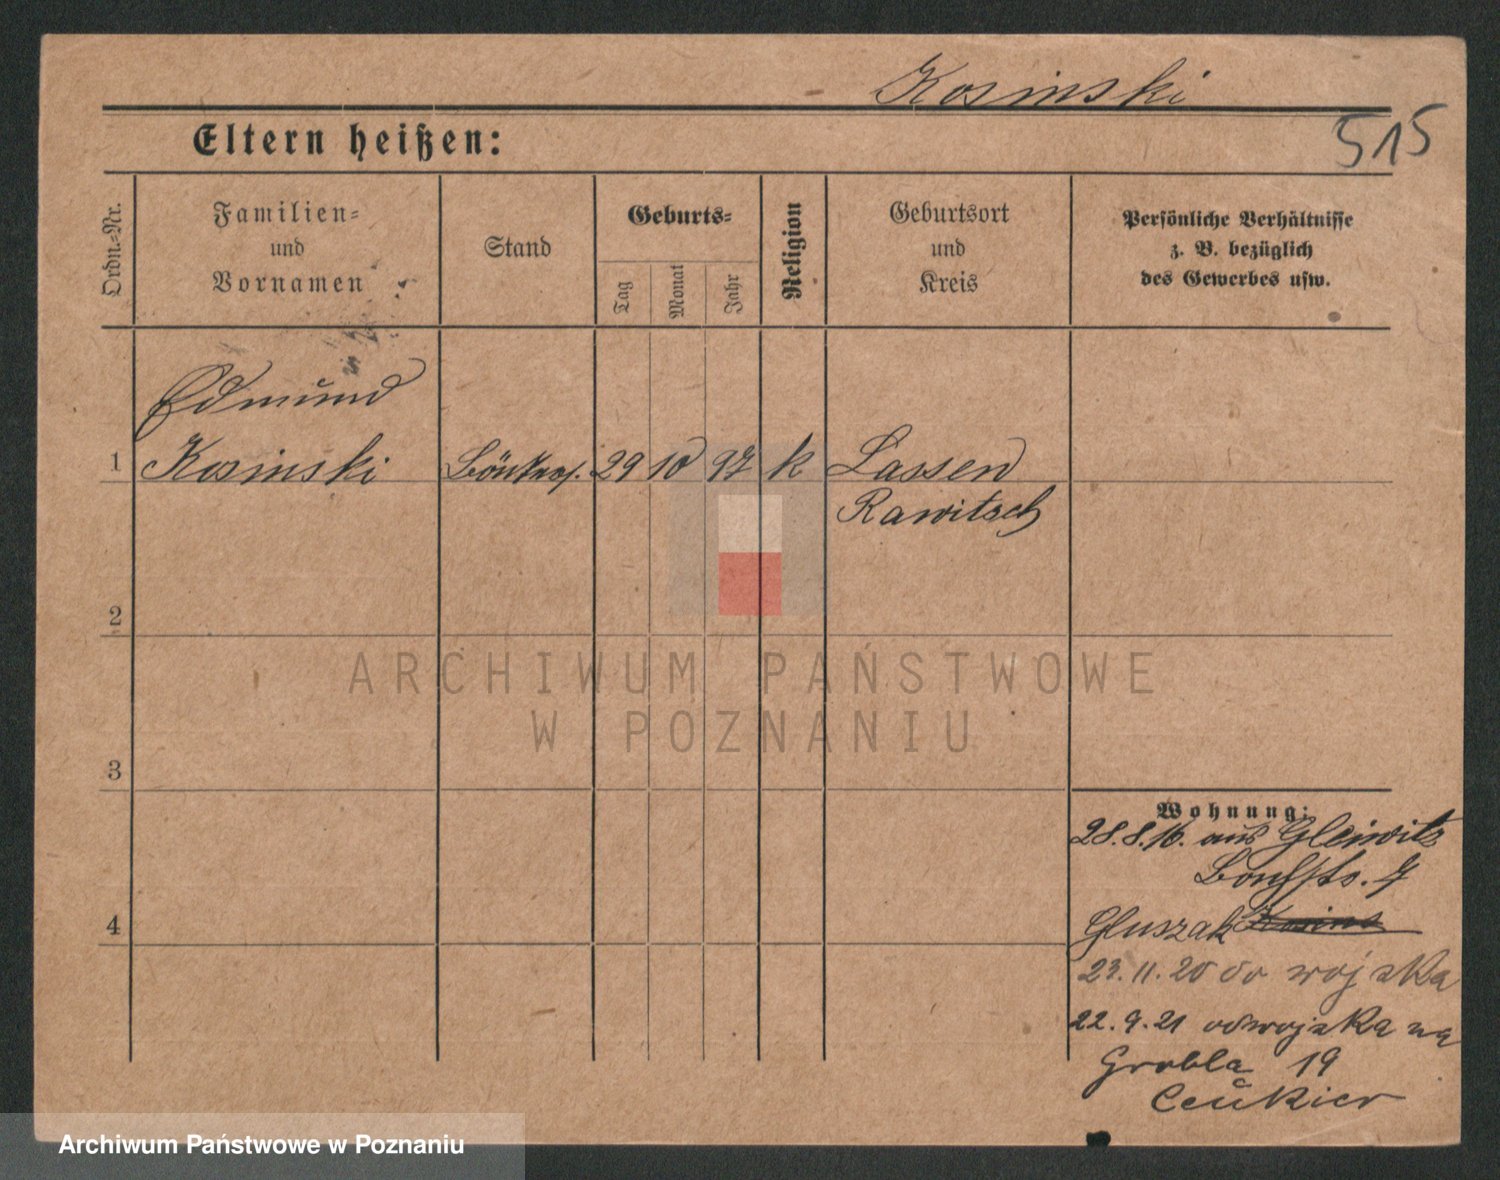 Kosinski
515
Eltern heißen:
Ordn.-Nr.
Familien-
und
Vornamen
Stand
Geburts-
Tag
Monat
Jahr
Religion
Geburtsort
und
Kreis
Persönliche Verhältnisse
z. B. bezüglich
des Gewerbes usw.
Edmund
1 Kosinski 29 10 97 k Lassen
Rawitsch
2
3
4
Wohnung:
28.8.16. aus Gleiwitz
7
Gluszak
23.11.20 do wojska
22.9.21 od wojska na
Grobla 19
ARCHIWUM PAŃSTWOWE
W POZNANIU
Archiwum Państwowe w Poznaniu